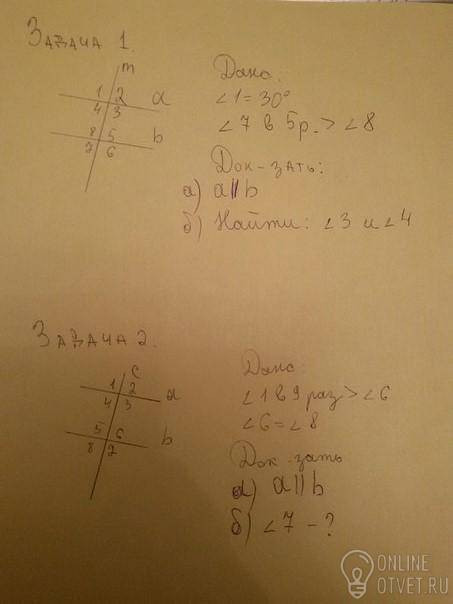 Задача 1.
m
1 2 a
4 3
8 5 b
7 6
Дано:
∠1 = 30°
∠7 в 5 р. > ∠8
Док-зать:
а) a || b
б) Найти: ∠3 и ∠4
Задача 2.
c
1 2 a
4 3
5 6 b
8 7
Дано:
∠1 в 9 раз > ∠6
∠6 = ∠8
Док-зать
а) a || b
б) ∠7 - ?
ONLINE
OTVET.RU